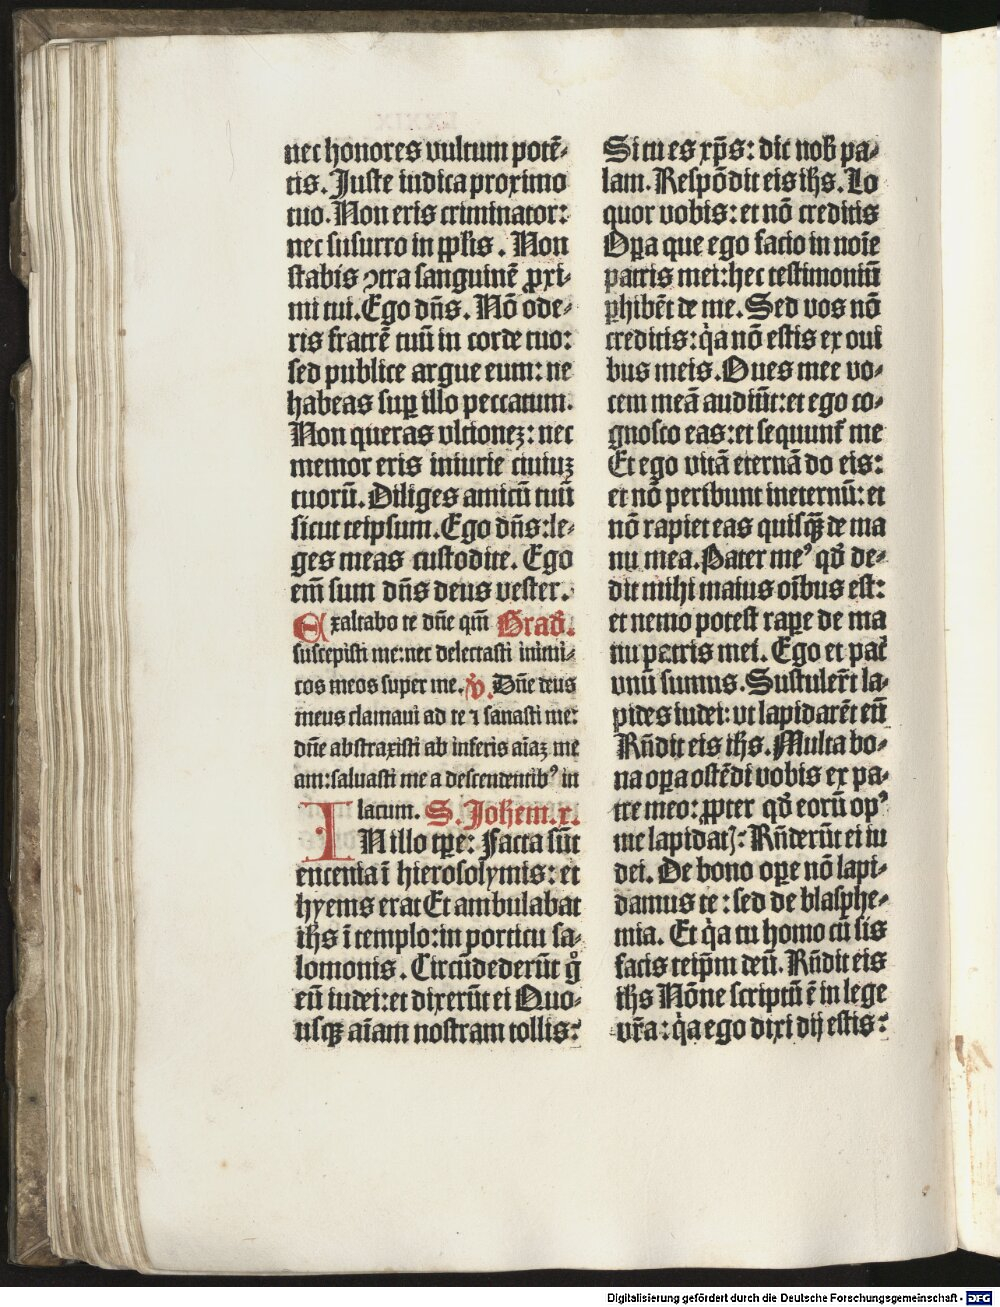 nec honores vultum potē-
tis. Juste iudica proximo
tuo. Non eris criminator:
nec susurro in ꝓplis. Non
stabis ↄtra sanguinē ꝓxi-
mi tui. Ego dñs. Nō ode-
ris fratrē tuū in corde tuo:
sed publice argue eum: ne
habeas suꝑ illo peccatum.
Non queras vltionez: nec
memor eris iniurie ciuiuz
tuorū. Diliges amicū tuū
sicut teipsum. Ego dñs: le-
ges meas custodite. Ego
em̄ sum dñs deus vester.
Exaltabo te dñe qm̄ Grad̄.
suscepisti me: nec delectasti inimi-
cos meos super me. ꝟ. Dñe deus
meus clamaui ad te ⁊ sanasti me:
dñe abstraxisti ab inferis aīaz me
am: saluasti me a descendentibꝰ in
lacum. S. Johem. x.
IN illo tꝑe: Facta sūt
encenia ī hierosolymis: et
hyems erat Et ambulabat
ihs ī templo: in porticu sa-
lomonis. Circūdederūt gͦ
eū iudei: et dixerūt ei Quo-
usqꝫ aīam nostram tollis:
Si tu es xp̄s: dic nob̄ pa-
lam. Respōdit eis ihs. Lo
quor vobis: et nō creditis
Oꝑa que ego facio in noīe
patris mei: hec testimoniū
ꝑhibēt de me. Sed vos nō
creditis: qͥa nō estis ex oui
bus meis. Oues mee vo-
cem meā audiūt: et ego co-
gnosco eas: et sequunt᷑ me
Et ego vitā eternā do eis:
et nō peribunt ineternū: et
nō rapiet eas quisqꝫ de ma
nu mea. Pater meꝰ qd̄ de-
dit mihi maius oībus est:
et nemo potest raꝑe de ma
nu patris mei. Ego et pat᷑
vnū sumus. Sustuler̄t la-
pides iudei: vt lapidarēt eū
Rn̄dit eis ihs. Multa bo-
na oꝑa ostēdi vobis ex pa-
tre meo: ꝓpter qd̄ eorū opꝰ
me lapidatꝭ: Rn̄derūt ei iu
dei. De bono oꝑe nō lapi-
damus te: sed de blasphe-
mia. Et qͥa tu homo cū sis
facis teip̄m deū. Rn̄dit eis
ihs Nōne scriptū ē in lege
vr̄a: qͥa ego dixi dij estis:
Digitalisierung gefördert durch die Deutsche Forschungsgemeinschaft - DFG